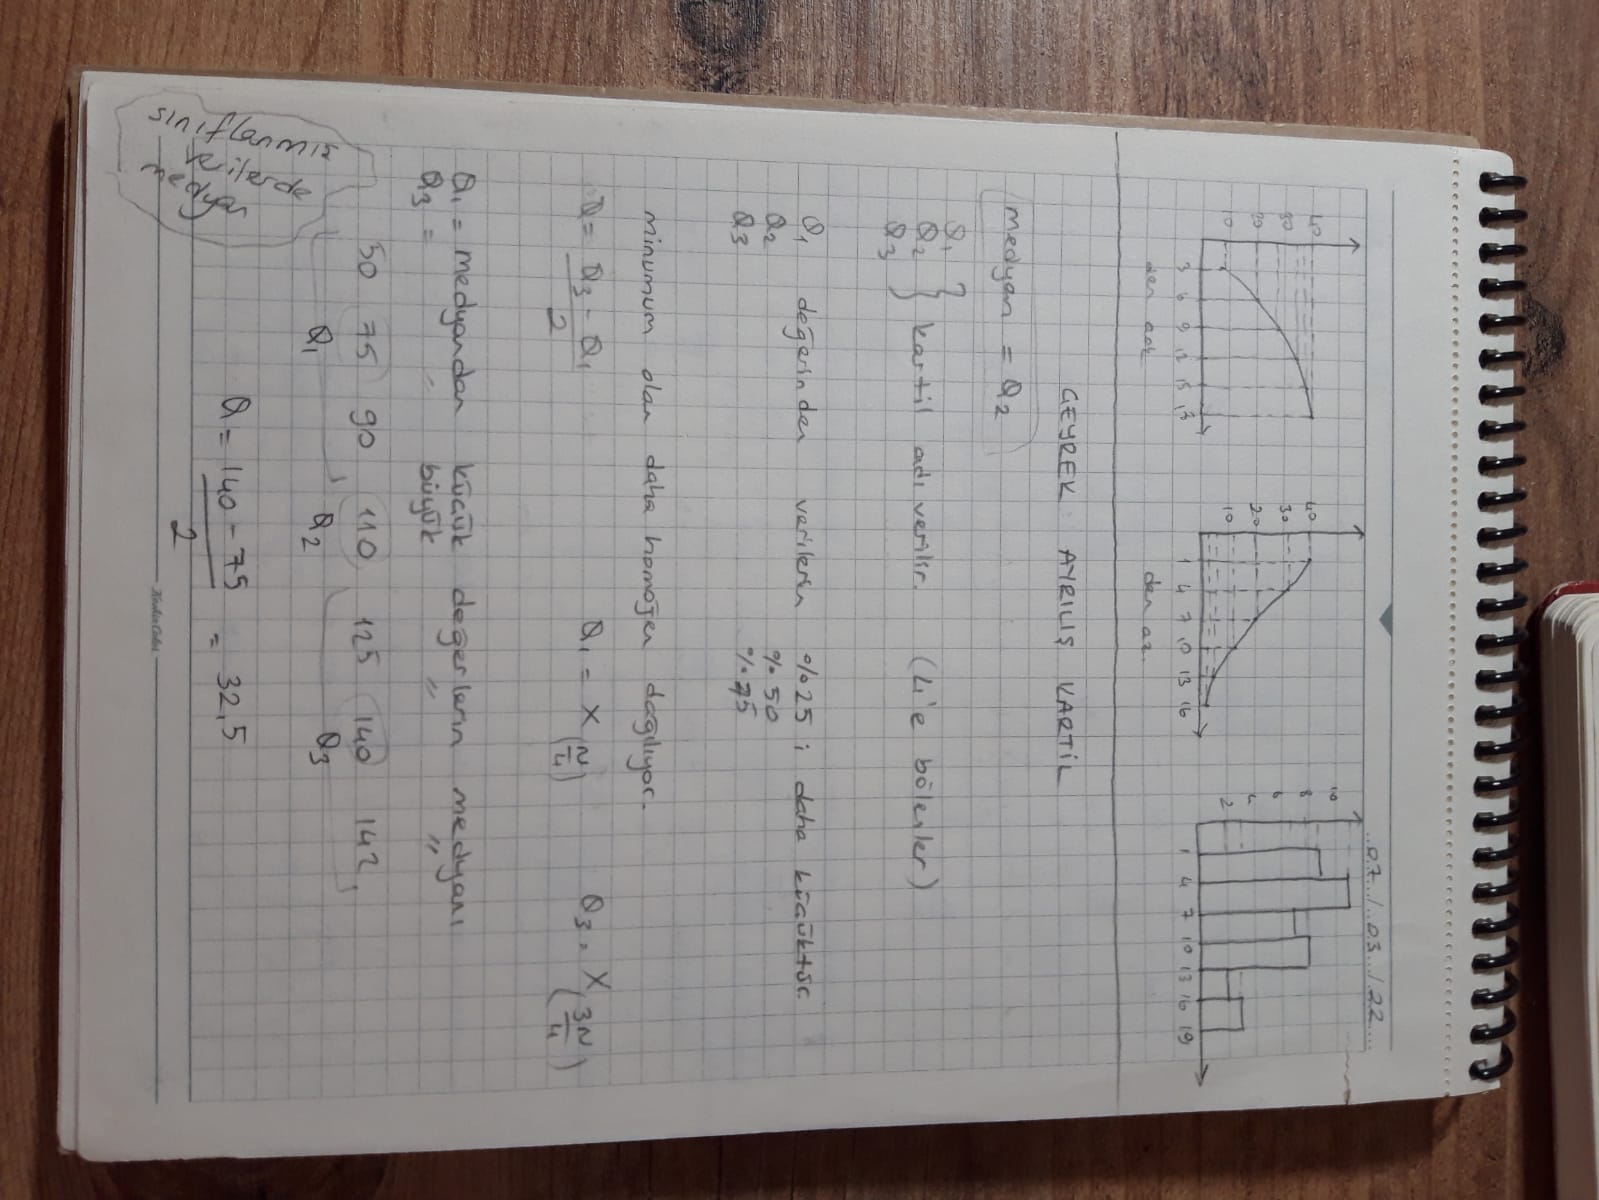 07/03/22
40
30
20
10
3 6 9 12 15 18
den çok
40
30
20
10
1 4 7 10 13 16
den az
10
8
6
4
2
1 4 7 10 13 16 19
ÇEYREK AYRILIŞ KARTİL
medyan = Q2
Q1
Q2 } kartil adı verilir. (4'e bölenler)
Q3
Q1 değerinden verilerin %25 i daha küçüktür
Q2 %50
Q3 %75
minumum olan daha homojen dağılıyor.
Q = Q3 - Q1 / 2 Q1 = X(N/4) Q3 = X(3N/4)
Q1 = medyandan küçük değerlerin medyanı
Q3 = " büyük " "
50 75 90 110 125 140 142
Q1 Q2 Q3
Q = 140 - 75 / 2 = 32,5
sınıflanmış
serilerde
medyan